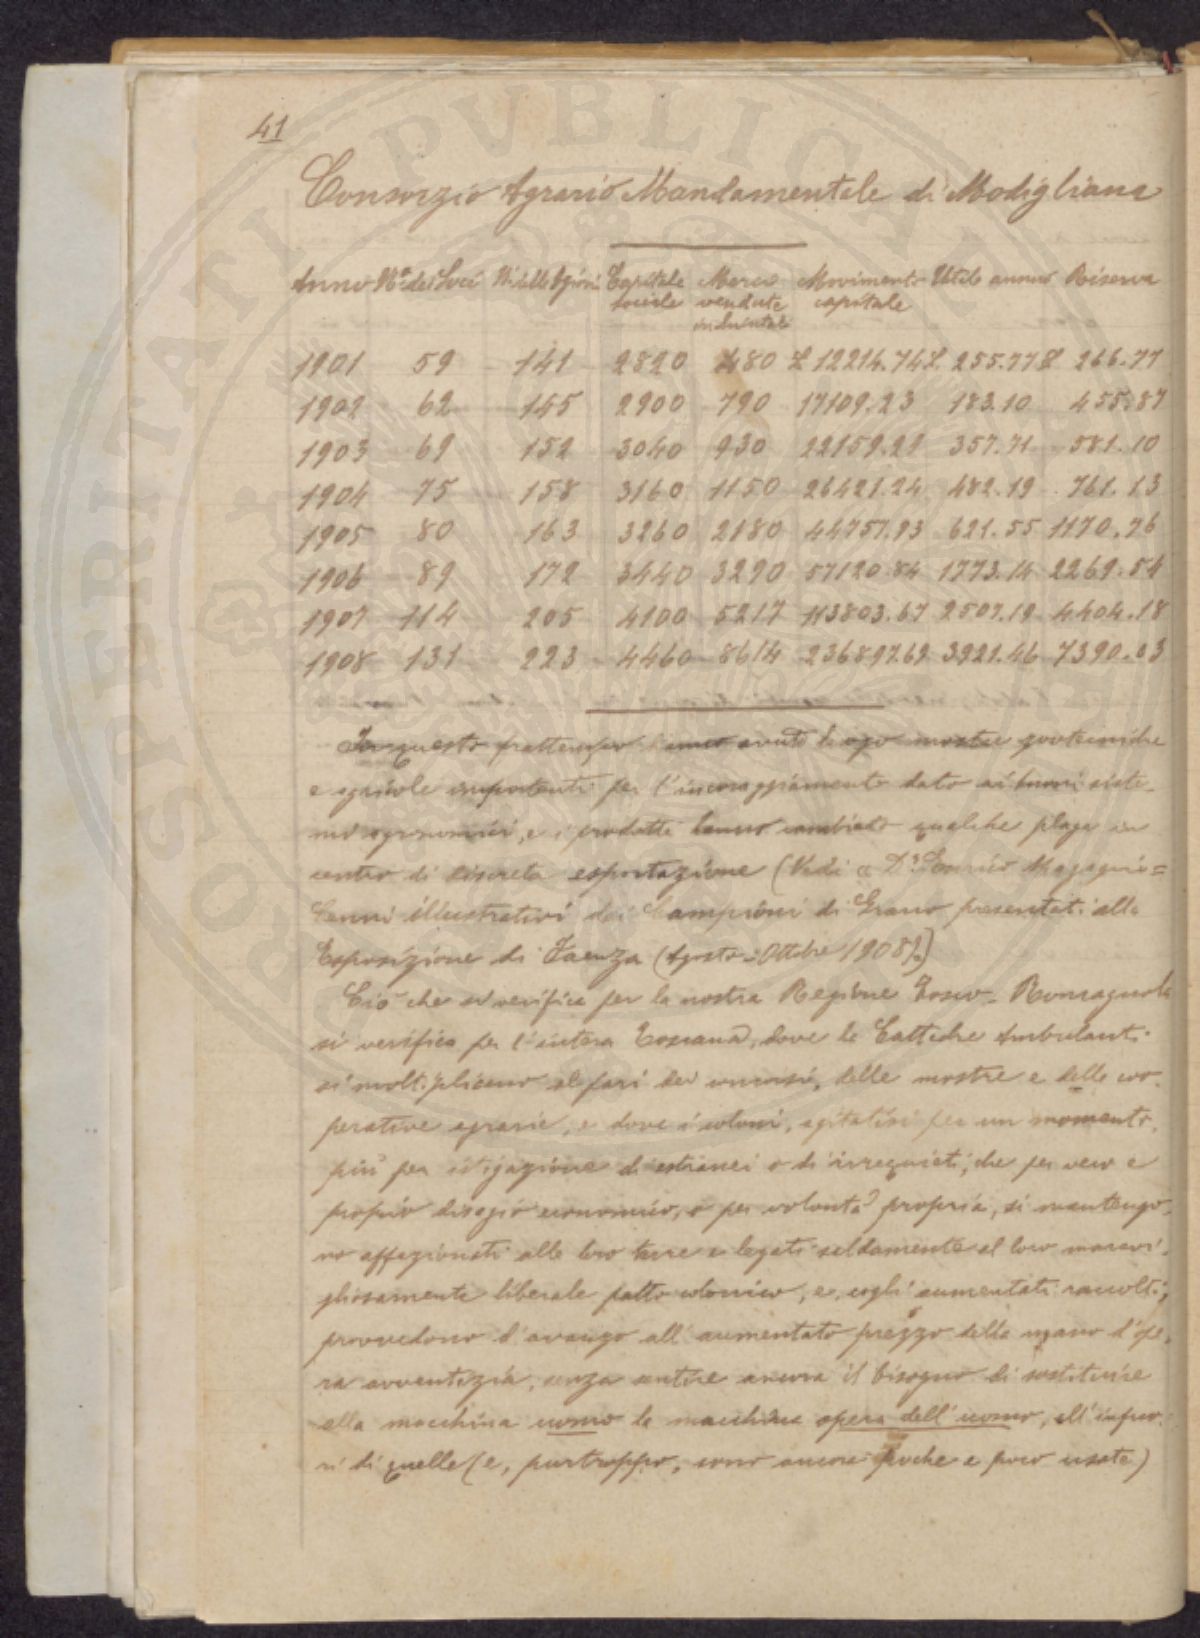 41
Consorzio Agrario Mandamentale di Modigliana
Anno No. dei Soci N. delle Azioni Capitale sociale Merce vendute in quintali Movimento capitale Utile annuo Riserva
1901 59 141 2820 480 £ 12214.74 £ 255.77 £ 266.77
1902 62 145 2900 790 17109.23 183.10 455.87
1903 69 152 3040 930 22159.29 357.71 581.10
1904 75 158 3160 1150 26421.24 482.19 761.13
1905 80 163 3260 2180 44757.93 621.55 1170.76
1906 89 172 3440 3290 57120.84 1773.14 2269.54
1907 114 205 4100 5217 113803.67 2507.19 4404.18
1908 131 223 4460 8614 236897.69 3921.46 7390.03
In questo frattempo hanno avuto luogo mostre zootecniche
e agricole importanti per l'incoraggiamento dato ai buoni siste-
mi agronomici, e i prodotti hanno cambiato qualche plaga in
centro di discreta esportazione (Vedi Dr.
Cenni illustrativi dei Campioni di Grano presentati alla
Esposizione di Faenza (Agosto = Ottobre 1908).)
Ciò che si verifica per la nostra Regione Tosco-Romagnola
si verifica per l'intera Toscana, dove le Cattedre Ambulanti
si moltiplicano al pari dei consorzi, delle mostre e delle coo-
perative agrarie, e dove i coloni, agitatisi per un momento,
più per istigazione di estranei o di irrequieti, che per vero e
proprio disagio economico, o per volontà propria, si mantengo-
no affezionati alle loro terre e legati saldamente al loro maravi-
gliosamente liberale patto colonico, e, cogli aumentati raccolti,
provvedono d'avanzo all'aumentato prezzo della mano d'ope-
ra avventizia, senza sentire ancora il bisogno di sostituire
alla macchina uomo la macchina opera dell'uomo, all'infuo-
ri di quelle (e, purtroppo, sono ancora poche e poco usate)
SOSPERITATI PVBLICAE